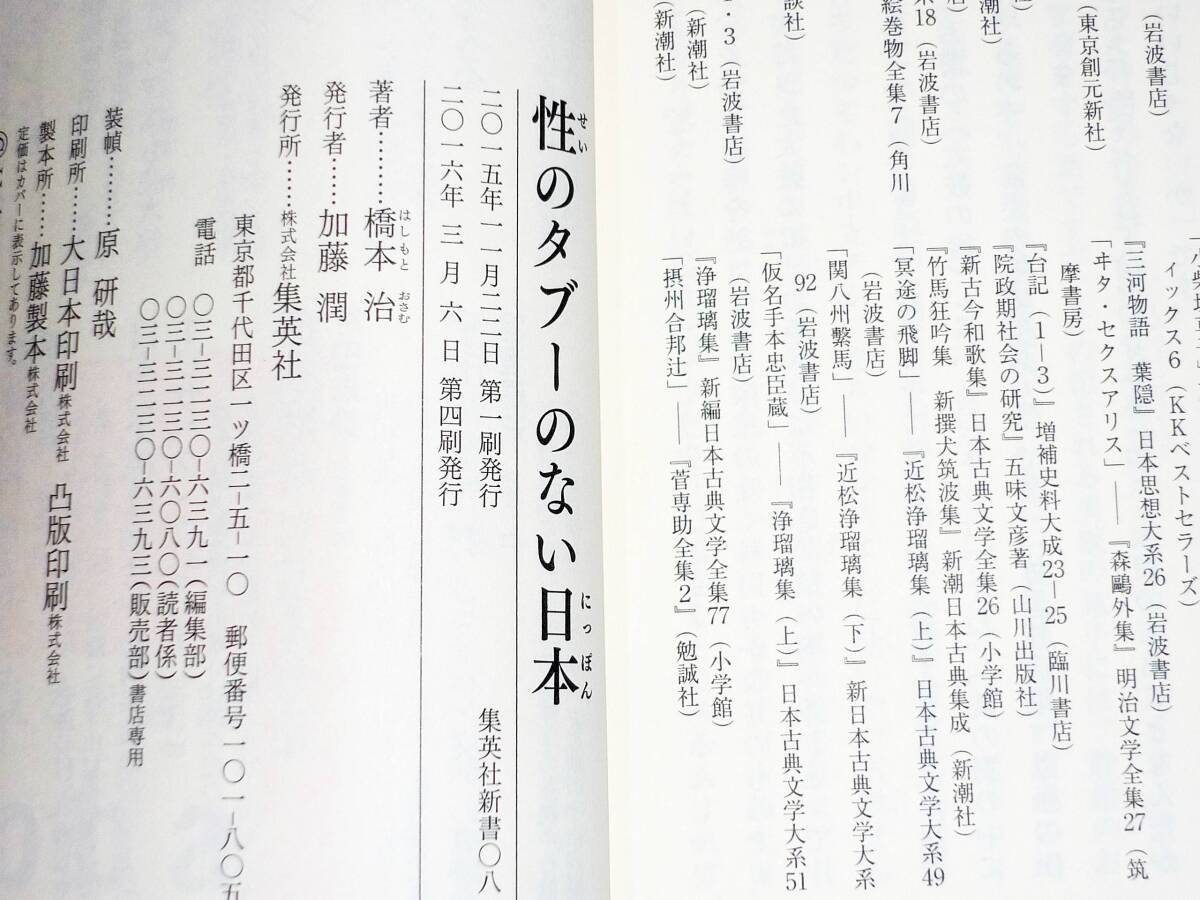 (岩波書店)
(東京創元新社)
18 (岩波書店)
絵巻物全集7 (角川
・3 (岩波書店)
(新潮社)
(新潮社)
イックス6 (KKベストセラーズ)
『三河物語 葉隠』日本思想大系26 (岩波書店)
「ヰタ・セクスアリス」――『森鷗外集』明治文学全集27 (筑
摩書房)
『台記 (1―3)』増補史料大成23―25 (臨川書店)
『院政期社会の研究』五味文彦著 (山川出版社)
『新古今和歌集』日本古典文学全集26 (小学館)
『竹馬狂吟集 新撰犬筑波集』新潮日本古典集成 (新潮社)
「冥途の飛脚」――『近松浄瑠璃集 (上)』日本古典文学大系49
(岩波書店)
「関八州繫馬」――『近松浄瑠璃集 (下)』新日本古典文学大系
92 (岩波書店)
「仮名手本忠臣蔵」――『浄瑠璃集 (上)』日本古典文学大系51
(岩波書店)
『浄瑠璃集』新編日本古典文学全集77 (小学館)
「摂州合邦辻」――『菅専助全集2』(勉誠社)
性のタブーのない日本
せい
にっぽん
集英社新書〇八
二〇一五年一一月二二日 第一刷発行
二〇一六年 三 月 六 日 第四刷発行
著者………橋本 治
はしもと おさむ
発行者……加藤 潤
発行所……株式会社集英社
東京都千代田区一ツ橋二-五-一〇 郵便番号一〇一-八〇五
電話 〇三-三二三〇-六三九一(編集部)
〇三-三二三〇-六〇八〇(読者係)
〇三-三二三〇-六三九三(販売部)書店専用
装幀………原 研哉
印刷所……大日本印刷株式会社 凸版印刷株式会社
製本所……加藤製本株式会社
定価はカバーに表示してあります。